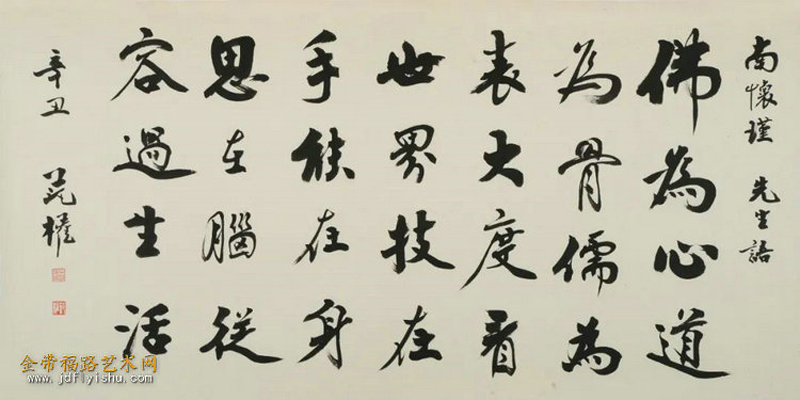 南懷瑾先生語
佛為心道
為骨儒為
表大度看
世界技在
手能在身
思在腦從
容過生活
辛丑
金带福路艺术网
www.jdflyishu.com